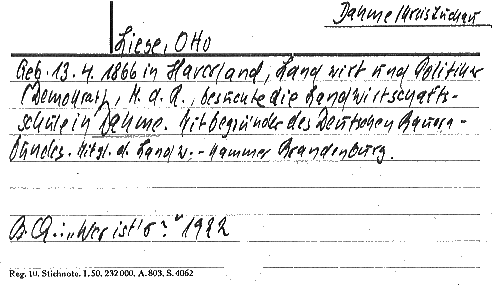 Dahme/Kreis Luckau
Liese, Otto
Geb. 13. 4. 1866 in Haverland, Landwirt und Politiker
(Demokrat), M. d. R., besuchte die Landwirtschafts-
schule in Dahme. Mitbegründer des Deutschen Bauern-
bundes. Mitgl. d. Landw.-Kammer Brandenburg.
B. Q.: "Wer ist's?" 1922
Reg. 10. Stichnote. I. 50. 232 000. A. 803. S. 4062